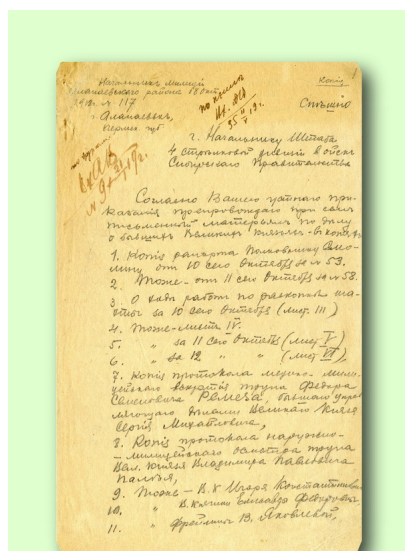 Копія
Начальникъ Милиціи
Алапаевскаго района 18 окт.
№ 117
Спѣшно
г. Алапаевскъ,
Пермск. губ.
г. Начальнику Штаба
4 стрѣлковой дивизіи войскъ
Сибирскаго Правительства
Согласно Вашего устнаго при-
казанія препровождаю при семъ
письменный матеріалъ по дѣлу
о бывшихъ Великихъ князьяхъ - въ копіях
1. Копія рапорта Полковнику Смо-
лину отъ 10 сего Октября за № 53.
2. Тоже - отъ 11 сего Октября за № 58.
3. О ходѣ работъ по раскопкѣ ша-
хты за 10 сего Октября (листъ III)
4. Тоже - листъ IV.
5. " за 11 сего Октября (листъ V)
6. " за 12 " " (листъ VI),
7. Копія протокола медико-
вскрытія трупа Федора
Семеновича Ремеза, бывшаго упра
вляющаго дѣлами Великаго Князя
Сергія Михайловича,
8. Копія протокола наружно-
- милицейскаго осмотра трупа
Вел. Князя Владимира Павловича
Палѣя,
9. Тоже - В.К Игоря Константинов
10. " В. Княгини Елисаветы Федоровны
11. " Фрейлины В. Яковлевой,